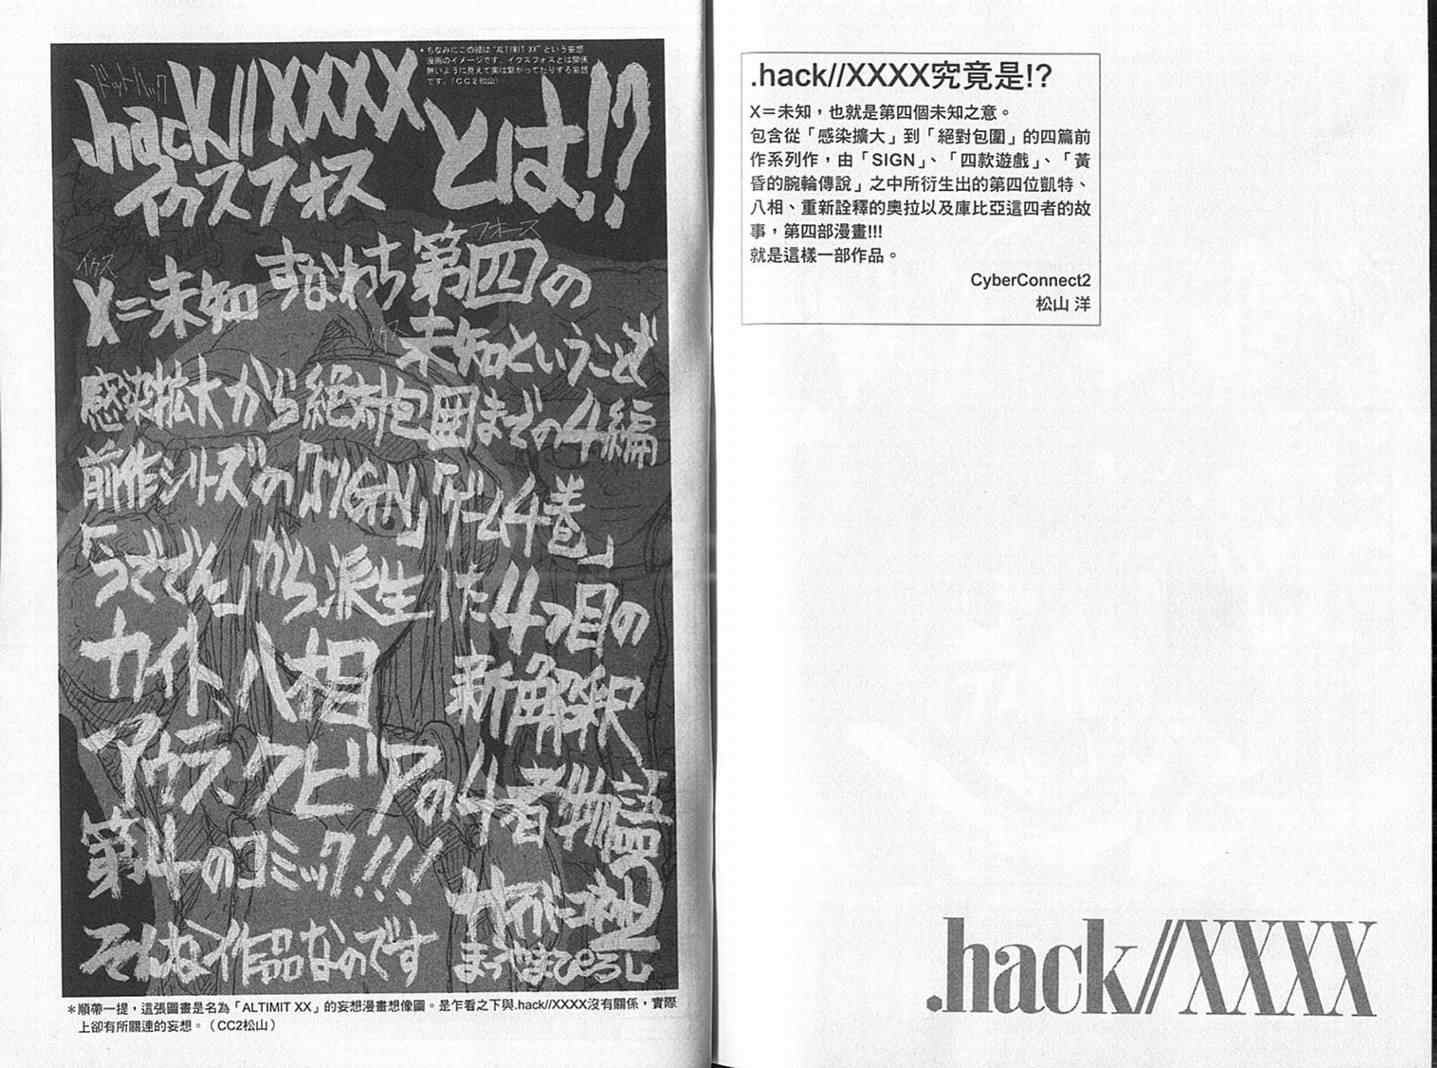 ドットハック
.hack//XXXXとは!?
イクスフォス
*ちなみにこの絵は“ALTIMIT XX”という妄想
漫画のイメージです。イクスフォスとは関係
無いように見えて実は繋がってたりする妄想
です。(CC2松山)
イクス
フォース
X=未知 すなわち第四の
イクス
未知ということ
感染拡大から絶対包囲までの4編
前作シリーズの「SIGN」「ゲーム4巻」
「うででん」から派生した4つ目の
カイト、八相
新解釈
アウラ、クビアの4者物語
第4のコミック!!!
そんな作品なのです
まつやまひろし
*順帶一提,這張圖畫是名為「ALTIMIT XX」的妄想漫畫想像圖。是乍看之下與.hack//XXXX沒有關係,實際
上卻有所關連的妄想。(CC2松山)
.hack//XXXX究竟是!?
X=未知,也就是第四個未知之意。
包含從「感染擴大」到「絕對包圍」的四篇前
作系列作,由「SIGN」、「四款遊戲」、「黃
昏的腕輪傳說」之中所衍生出的第四位凱特、
八相、重新詮釋的奧拉以及庫比亞這四者的故
事,第四部漫畫!!!
就是這樣一部作品。
CyberConnect2
松山 洋
.hack//XXXX